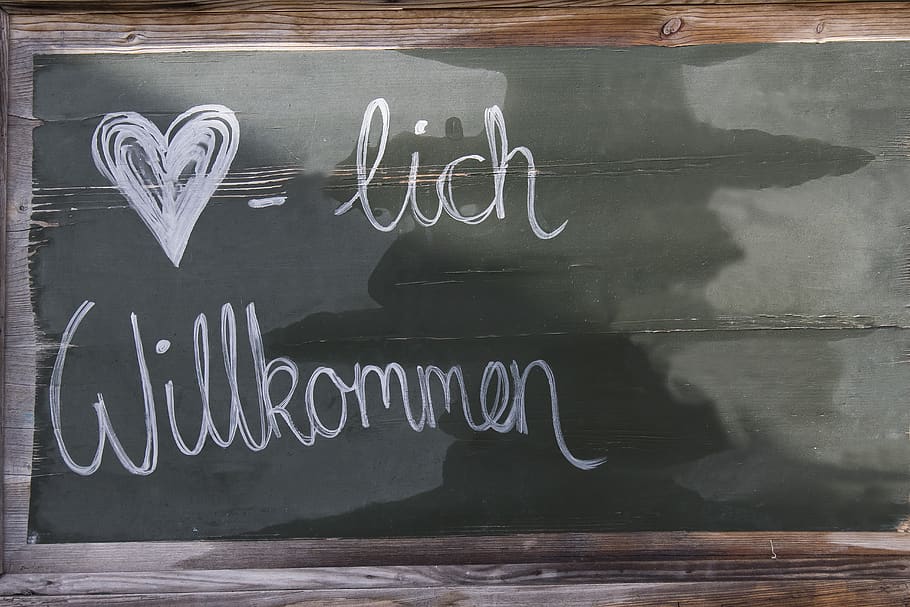 ♡- lich
Willkommen